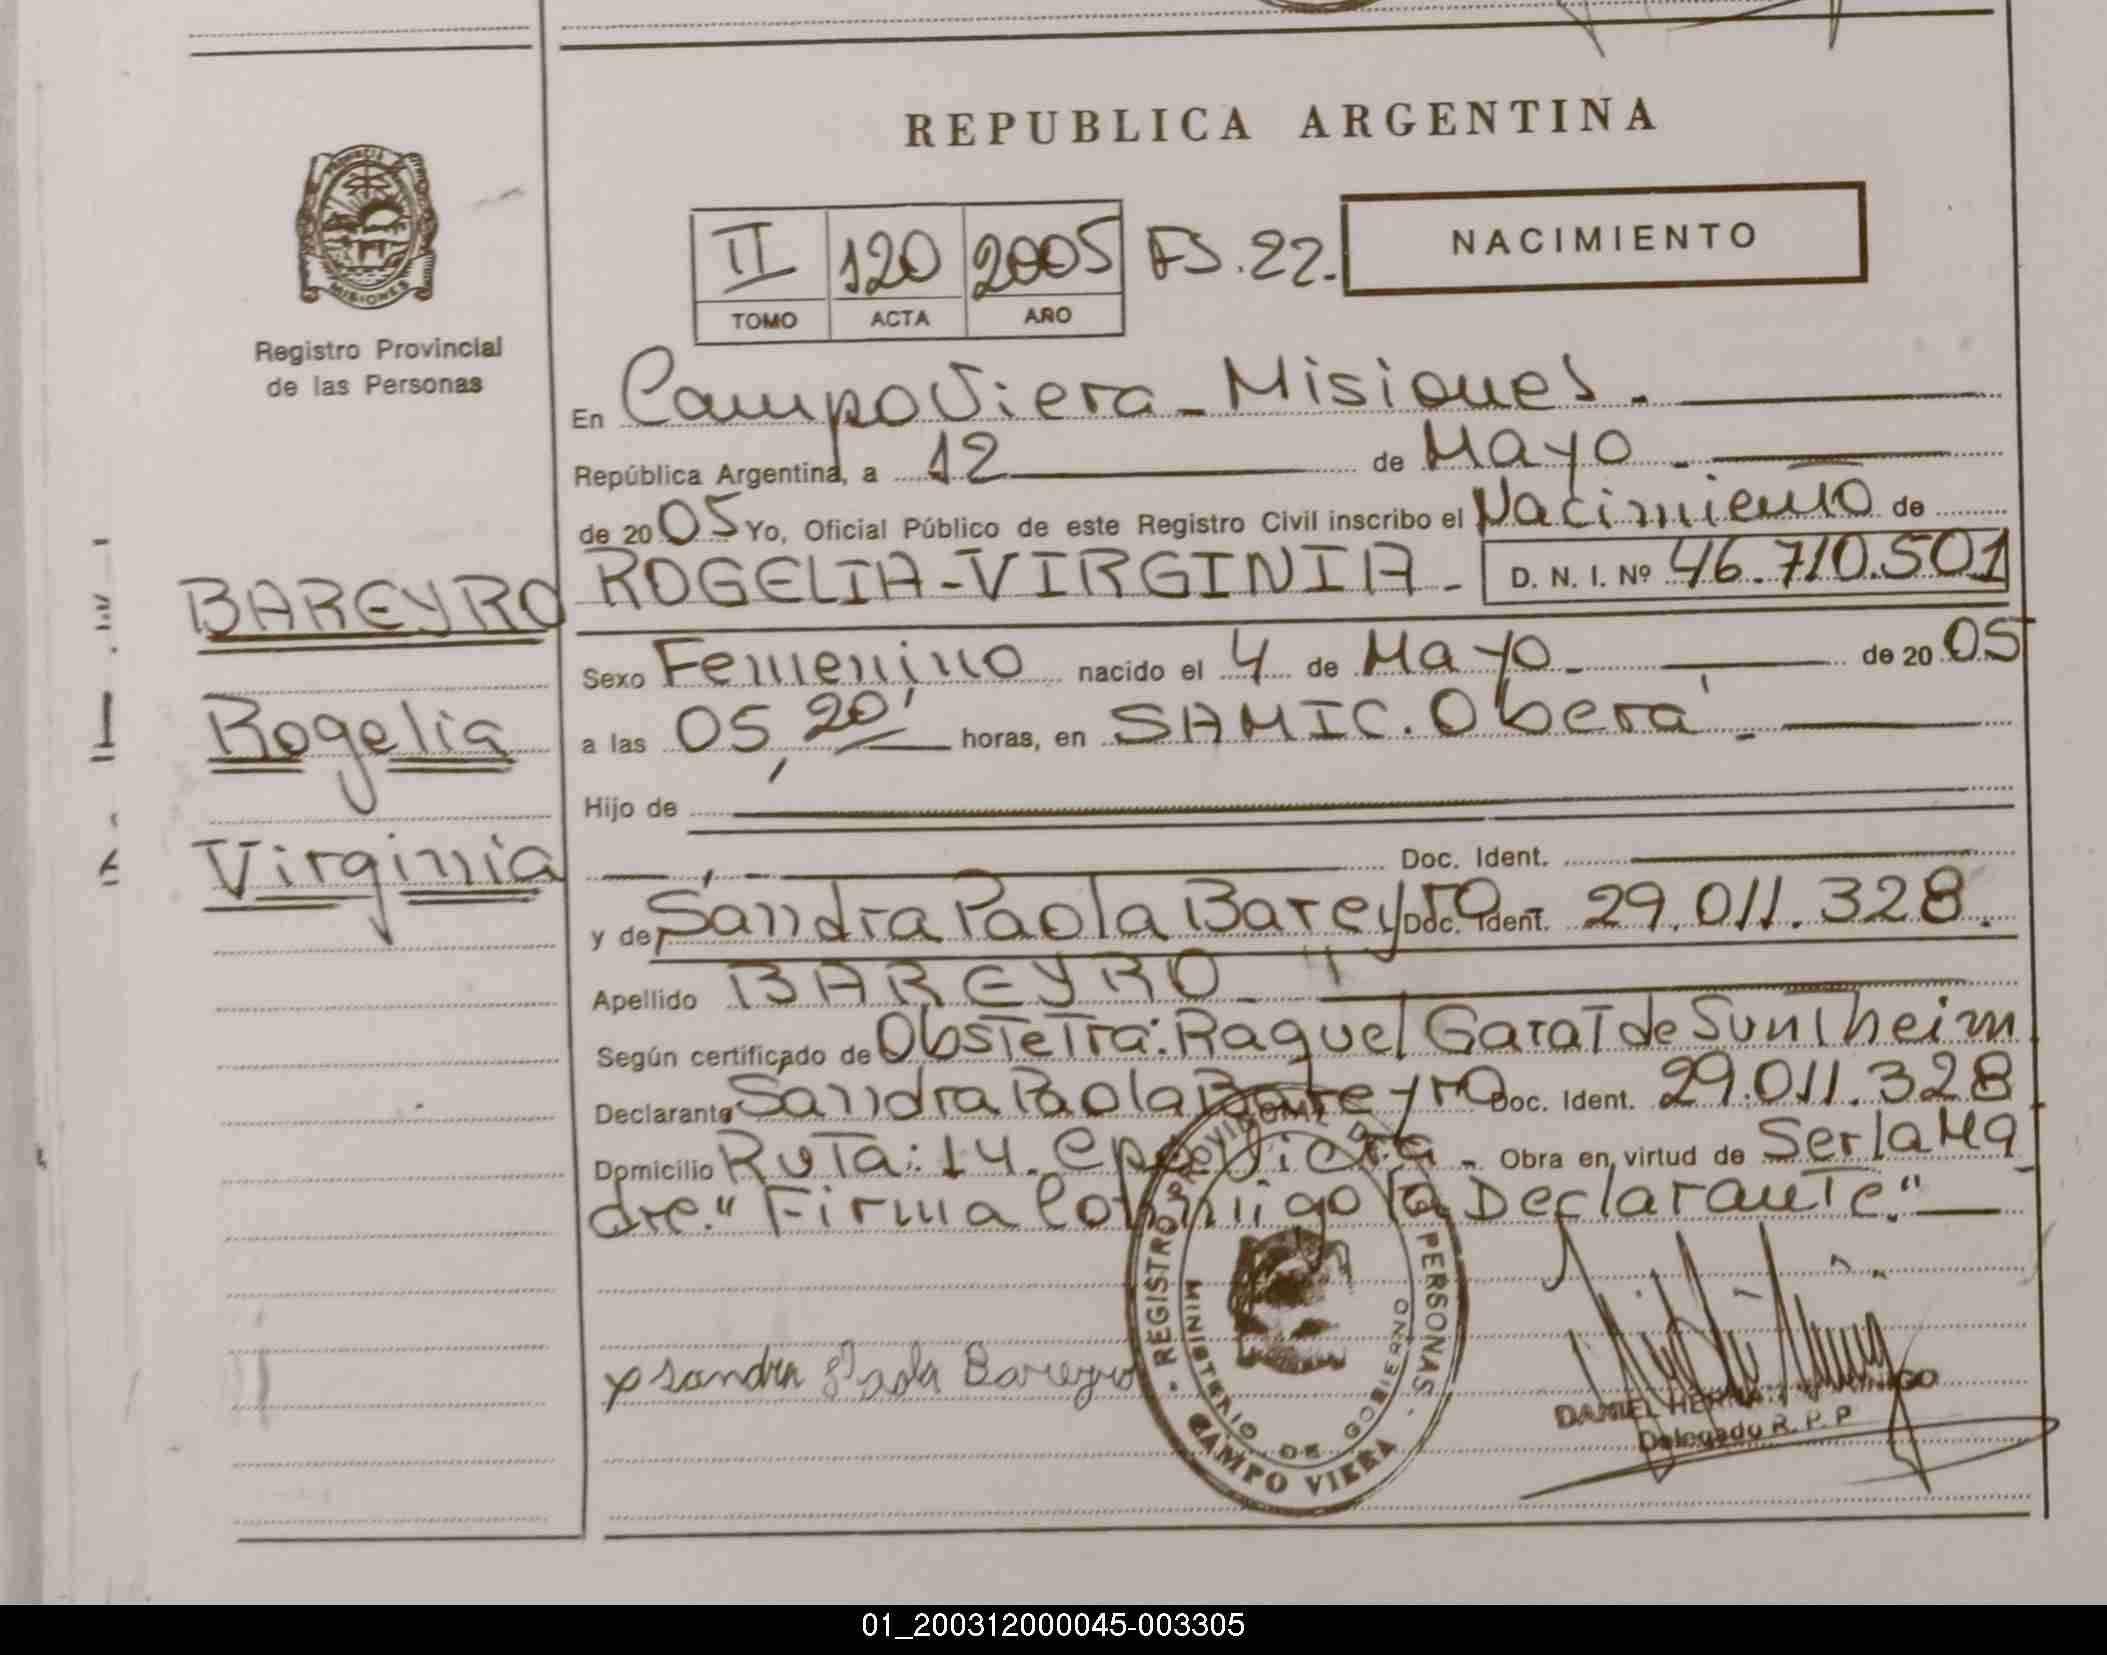 REPUBLICA ARGENTINA
PROVINCIA
MISIONES
Registro Provincial
de las Personas
II 120 2005 FS.22.-
TOMO ACTA AÑO
NACIMIENTO
En Campo Viera - Misiones.
República Argentina, a 12 de Mayo
de 2005 Yo, Oficial Público de este Registro Civil inscribo el Nacimiento de
BAREYRO ROGELIA-VIRGINIA- D. N. I. Nº 46.710.501
Rogelia
Virginia
Sexo Femenino nacido el 4 de Mayo de 2005
a las 05,20' horas, en SAMIC. Oberá
Hijo de
Doc. Ident.
y de Sandra Paola Bareyro Doc. Ident. 29.011.328.
Apellido BAREYRO
Según certificado de Obstetra: Raquel Garat de Suntheim
Declarante Sandra Paola Bareyro Doc. Ident. 29.011.328
Domicilio Ruta: 14. Cpo Viera - Obra en virtud de Ser la Ma
dre." Firma Conmigo la Declarante."
x Sandra Paola Bareyro
REGISTRO PROVINCIAL PERSONAS
MINISTERIO DE GOBIERNO
CAMPO VIERA
DANIEL
Delegado R. P. P
01_200312000045-003305